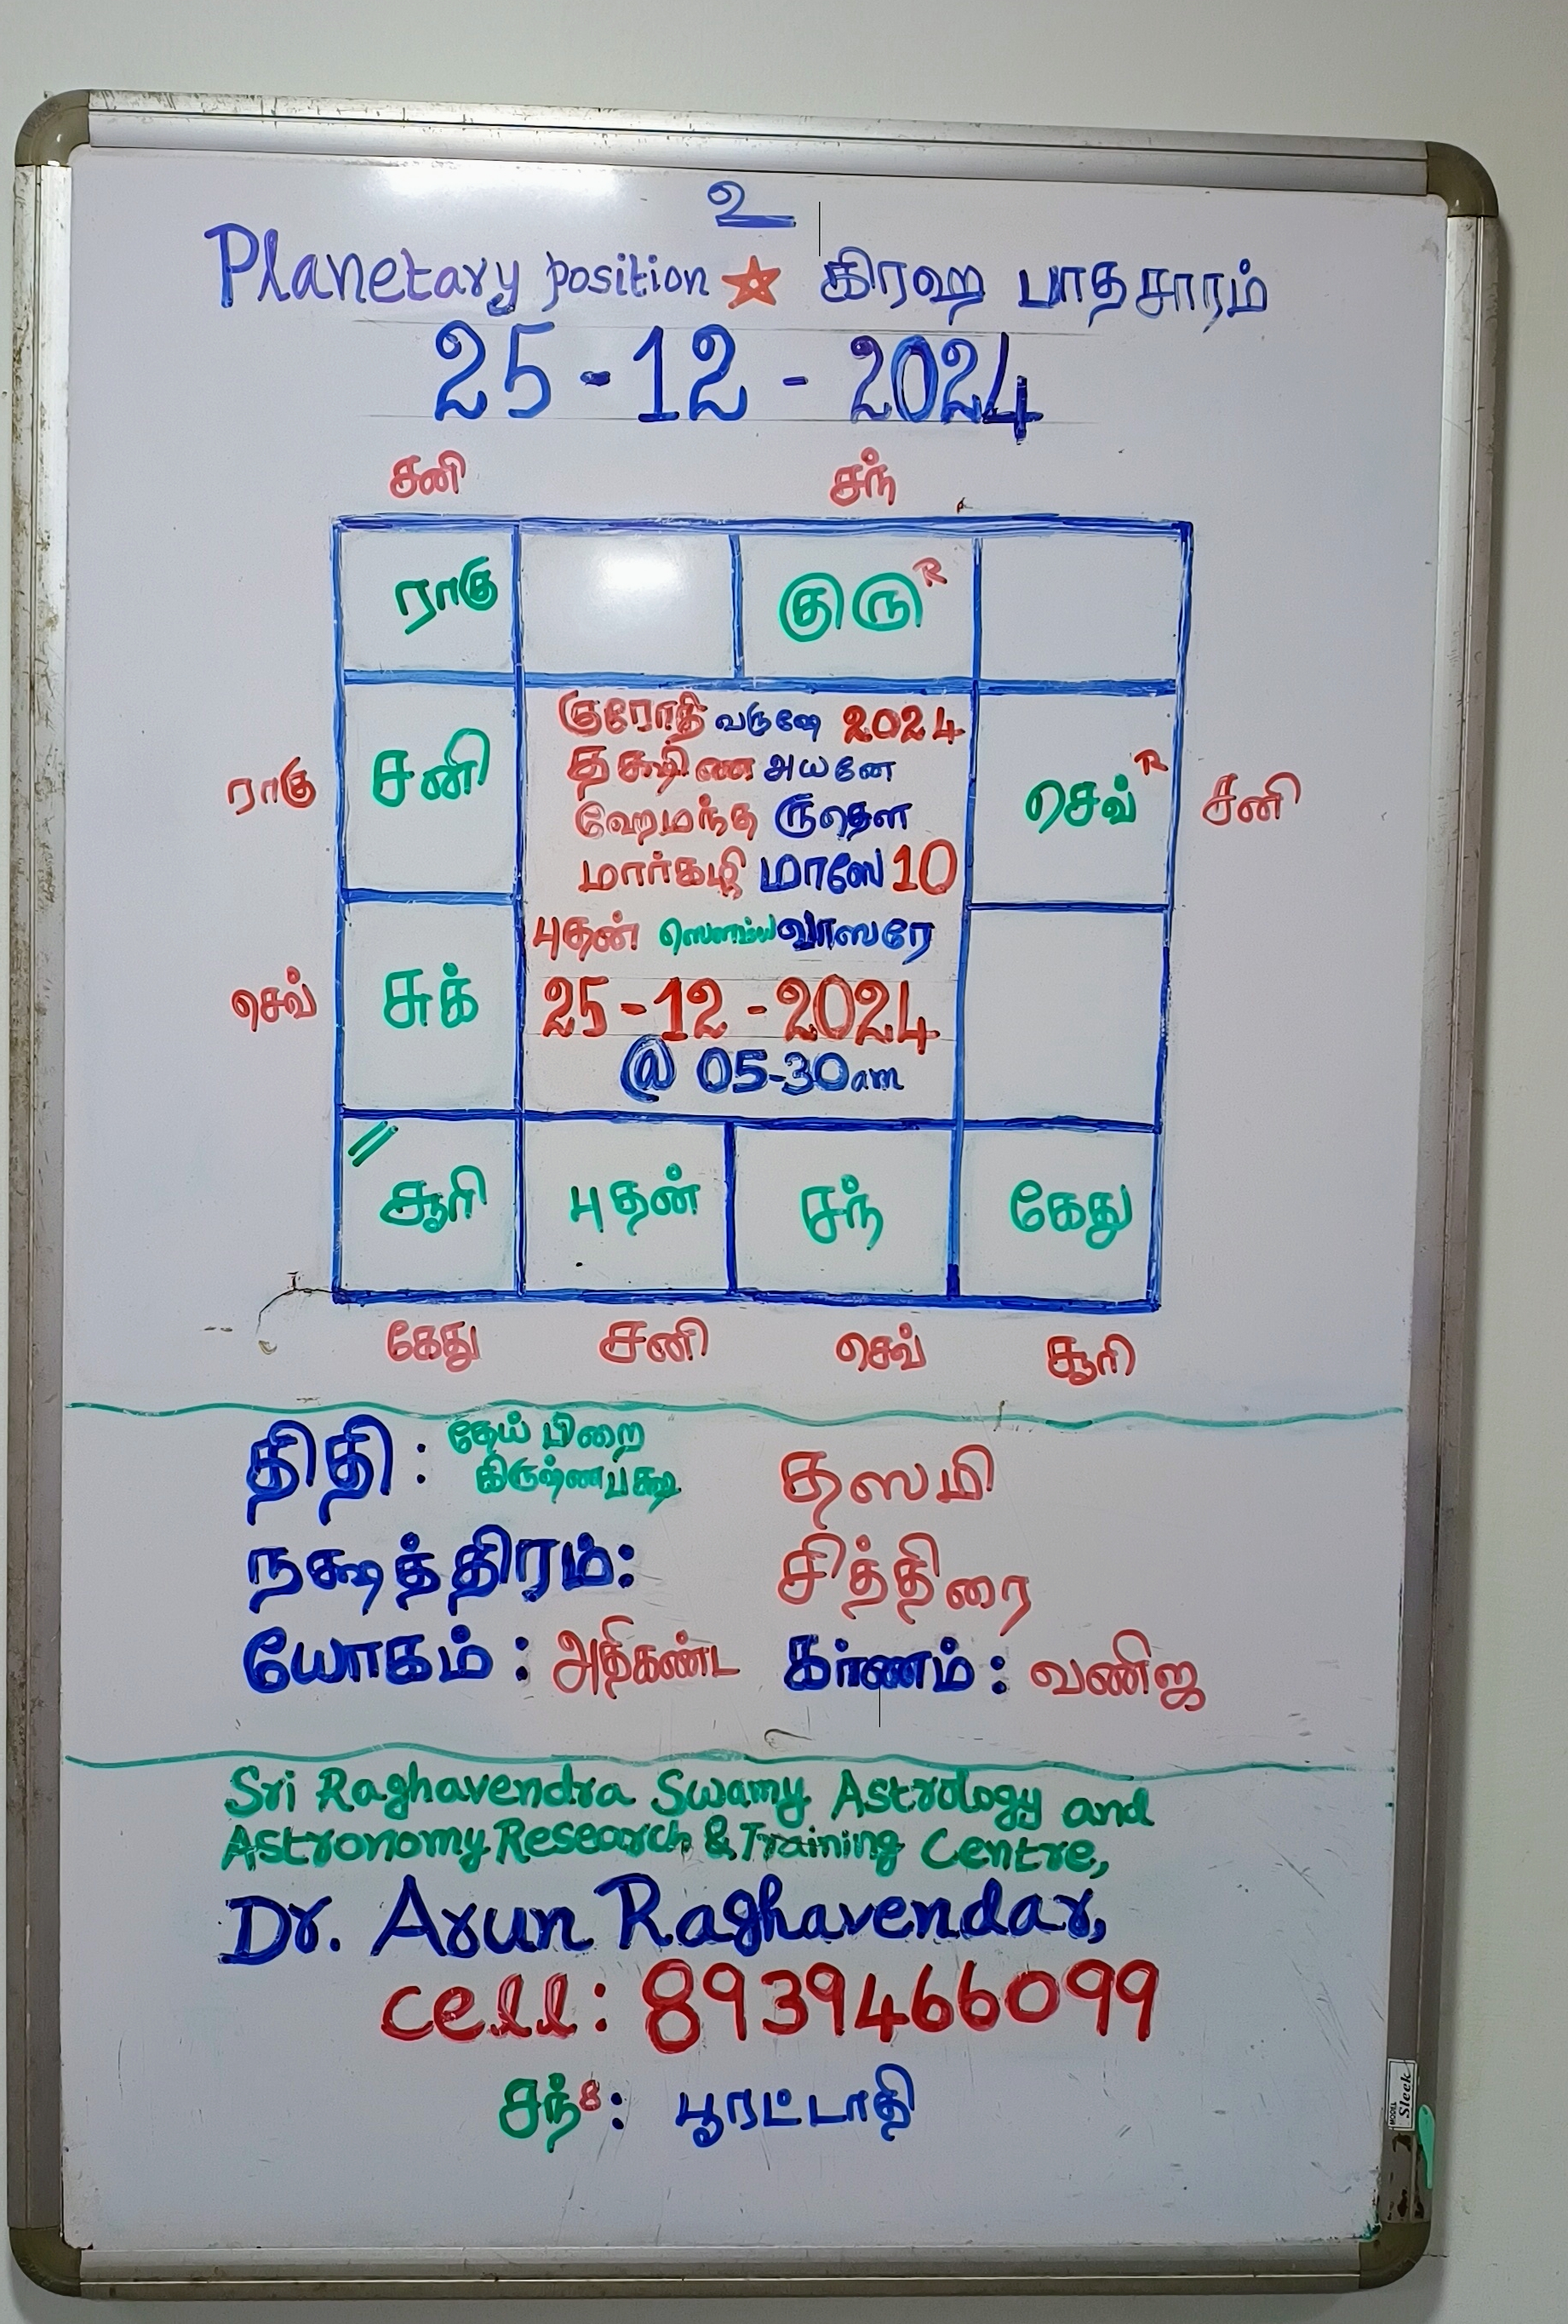 உ
Planetary position ★ கிரஹ பாதசாரம்
25-12-2024
சனி சந்
ராகு குரு R
குரோதி வருஷே 2024
தக்ஷிண அயனே
ராகு சனி செவ் R சனி
ஹேமந்த ருதௌ
மார்கழி மாஸே 10
புதன் ஸௌம்ய வாஸரே
செவ் சுக் 25-12-2024
@ 05-30am
சூரி புதன் சந் கேது
கேது சனி செவ் சூரி
திதி: தேய் பிறை
கிருஷ்ணபக்ஷ தஸமி
நக்ஷத்திரம்: சித்திரை
யோகம்: அதிகண்ட கர்ணம்: வணிஜ
Sri Raghavendra Swamy Astrology and
Astronomy Research & Training Centre,
Dr. Arun Raghavendar,
cell: 8939466099
சந் 8: பூரட்டாதி
MODEL Sleek